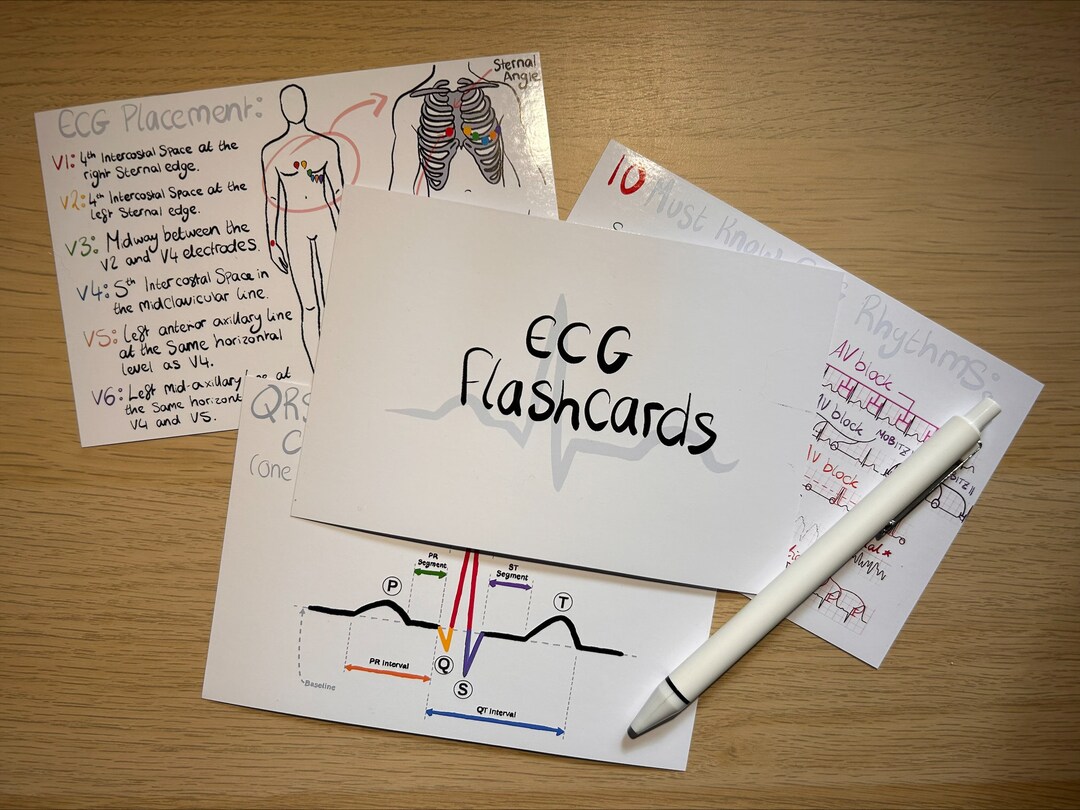 ECG Placement:
V1: 4th Intercostal Space at the
right Sternal edge.
V2: 4th Intercostal Space at the
left Sternal edge.
V3: Midway between the
V2 and V4 electrodes.
V4: 5th Intercostal Space in
the midclavicular line.
V5: Left anterior axillary line
at the Same horizontal
level as V4.
V6: Left mid-axillary at
the Same horizont
V4 and V5.
Sternal
Angle
10 Must Know
Rhythms:
AV block
AV block MOBITZ I
AV block MOBITZ II
ECG
Flashcards
QRS
C
(one
PR
Segment
ST
Segment
P
T
Q
S
PR Interval
QT Interval
Baseline